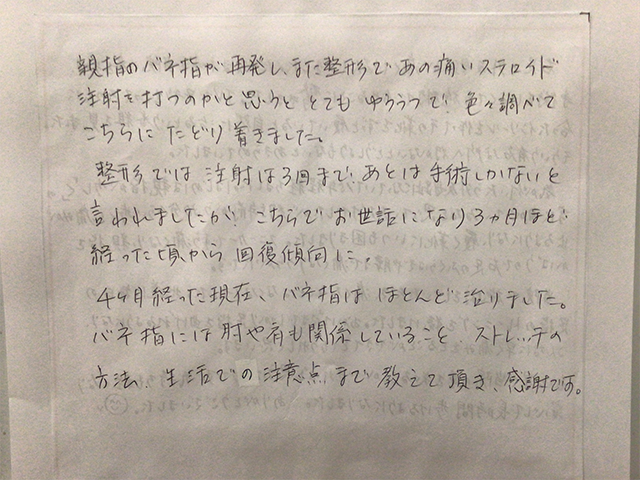 親指のバネ指が再発し、また整形であの痛いステロイド
注射を打つのかと思うと とても ゆううつで 色々調べて
こちらに たどり着きました。
整形では 注射は3回まで、あとは手術しかないと
言われましたが、こちらで お世話になり 3ヵ月ほど
経った頃から 回復傾向に。
4ヶ月経った現在、バネ指は ほとんど治りました。
バネ指には 肘や肩も関係していること、ストレッチの
方法、生活での注意点まで 教えて頂き、感謝です。